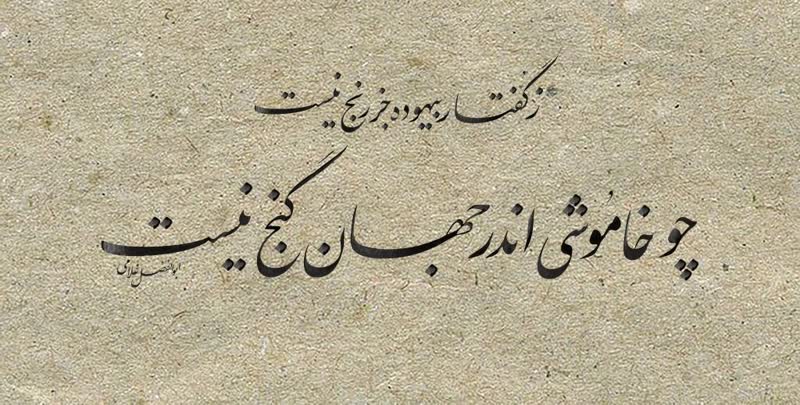 ز گفتار بیهوده جز رنج نیست
چو خامُوشی اندر جهان گنج نیست
ابوالفضل غلامی